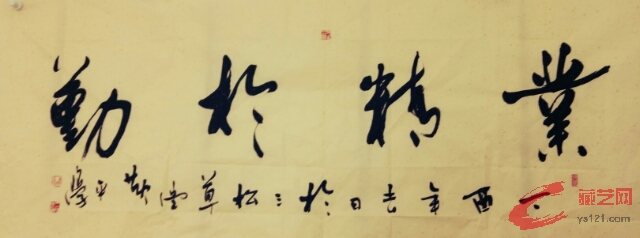 業精於勤
丁酉年吉日於三松草堂
藏艺网
ys121.com